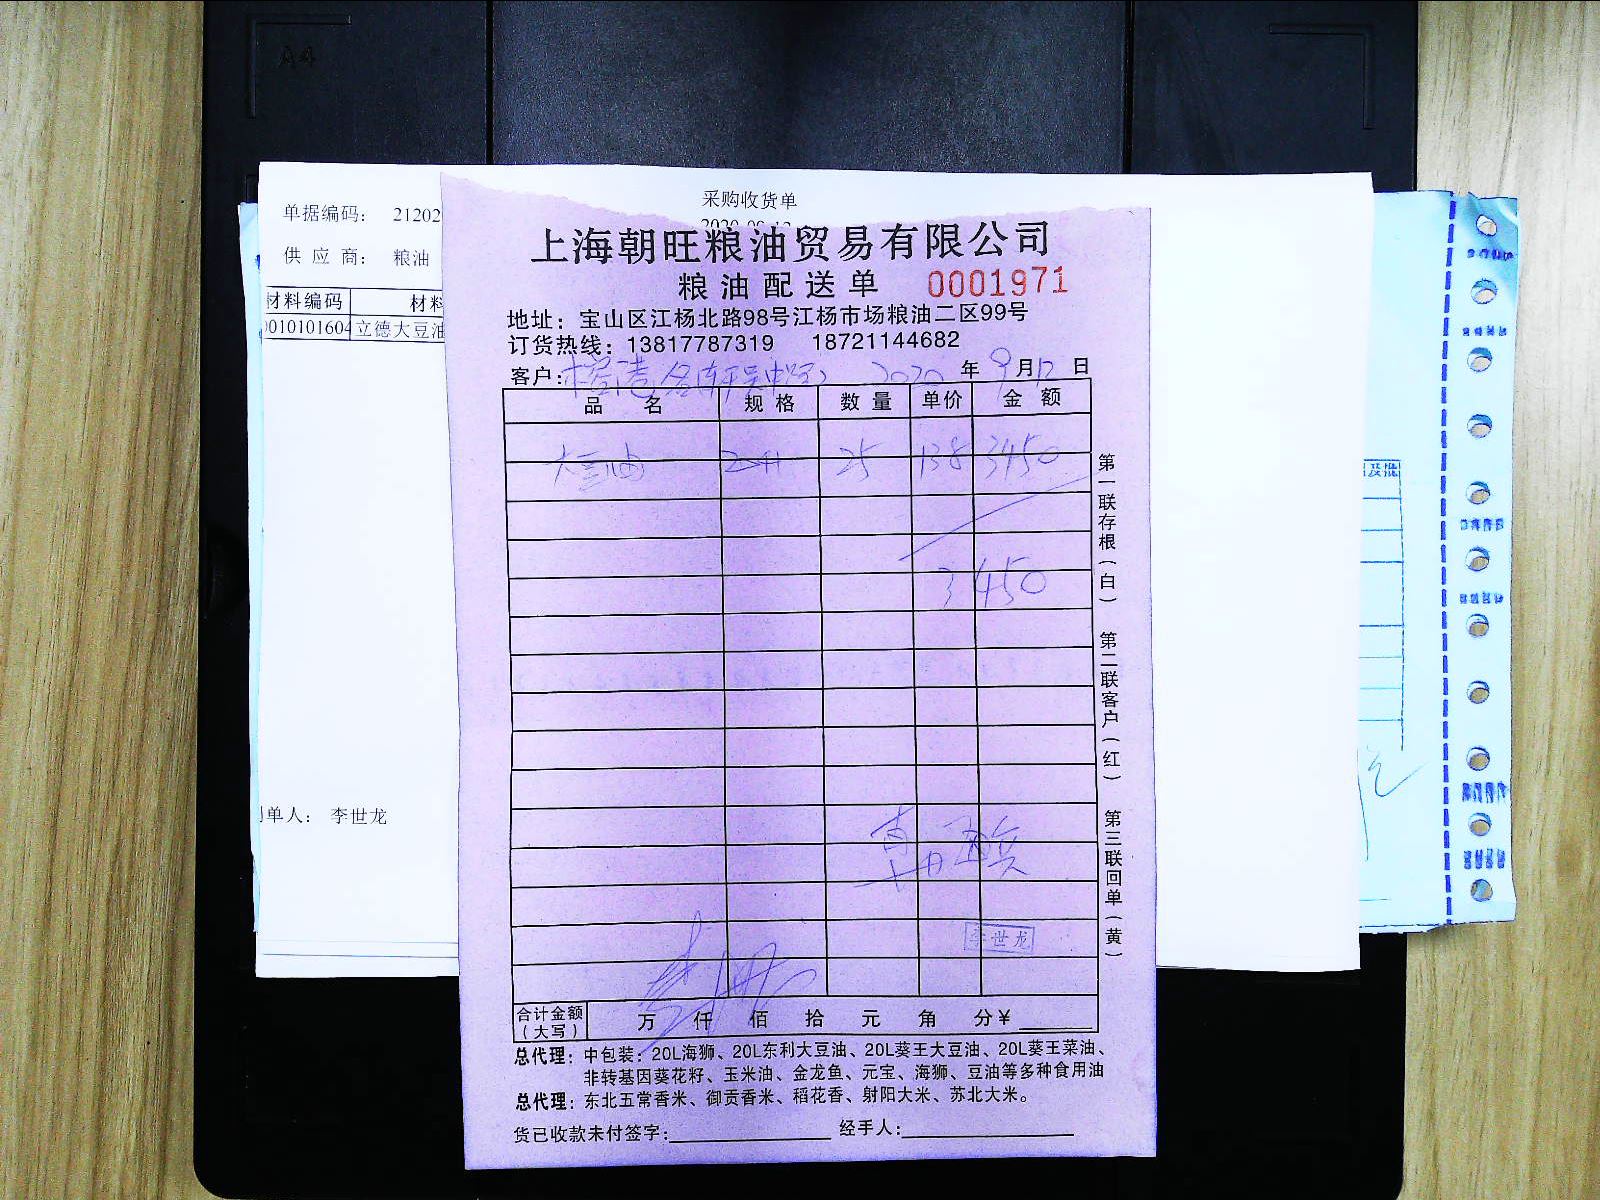 A4
采购收货单
单据编码： 21202
供 应 商： 粮油
材料编码 材料
0010101604 立德大豆油
制单人： 李世龙
上海朝旺粮油贸易有限公司
粮油配送单 0001971
地址：宝山区江杨北路98号江杨市场粮油二区99号
订货热线：13817787319 18721144682
客户： 2020 年 9 月 12 日
品 名 规 格 数 量 单价 金 额
大豆油 25 138 3450
3450
第一联存根（白） 第二联客户（红） 第三联回单（黄）
李世龙
合计金额（大写） 万 仟 佰 拾 元 角 分¥
总代理：中包装：20L海狮、20L东利大豆油、20L葵王大豆油、20L葵王菜油、
非转基因葵花籽、玉米油、金龙鱼、元宝、海狮、豆油等多种食用油
总代理：东北五常香米、御贡香米、稻花香、射阳大米、苏北大米。
货已收款未付签字： 经手人：